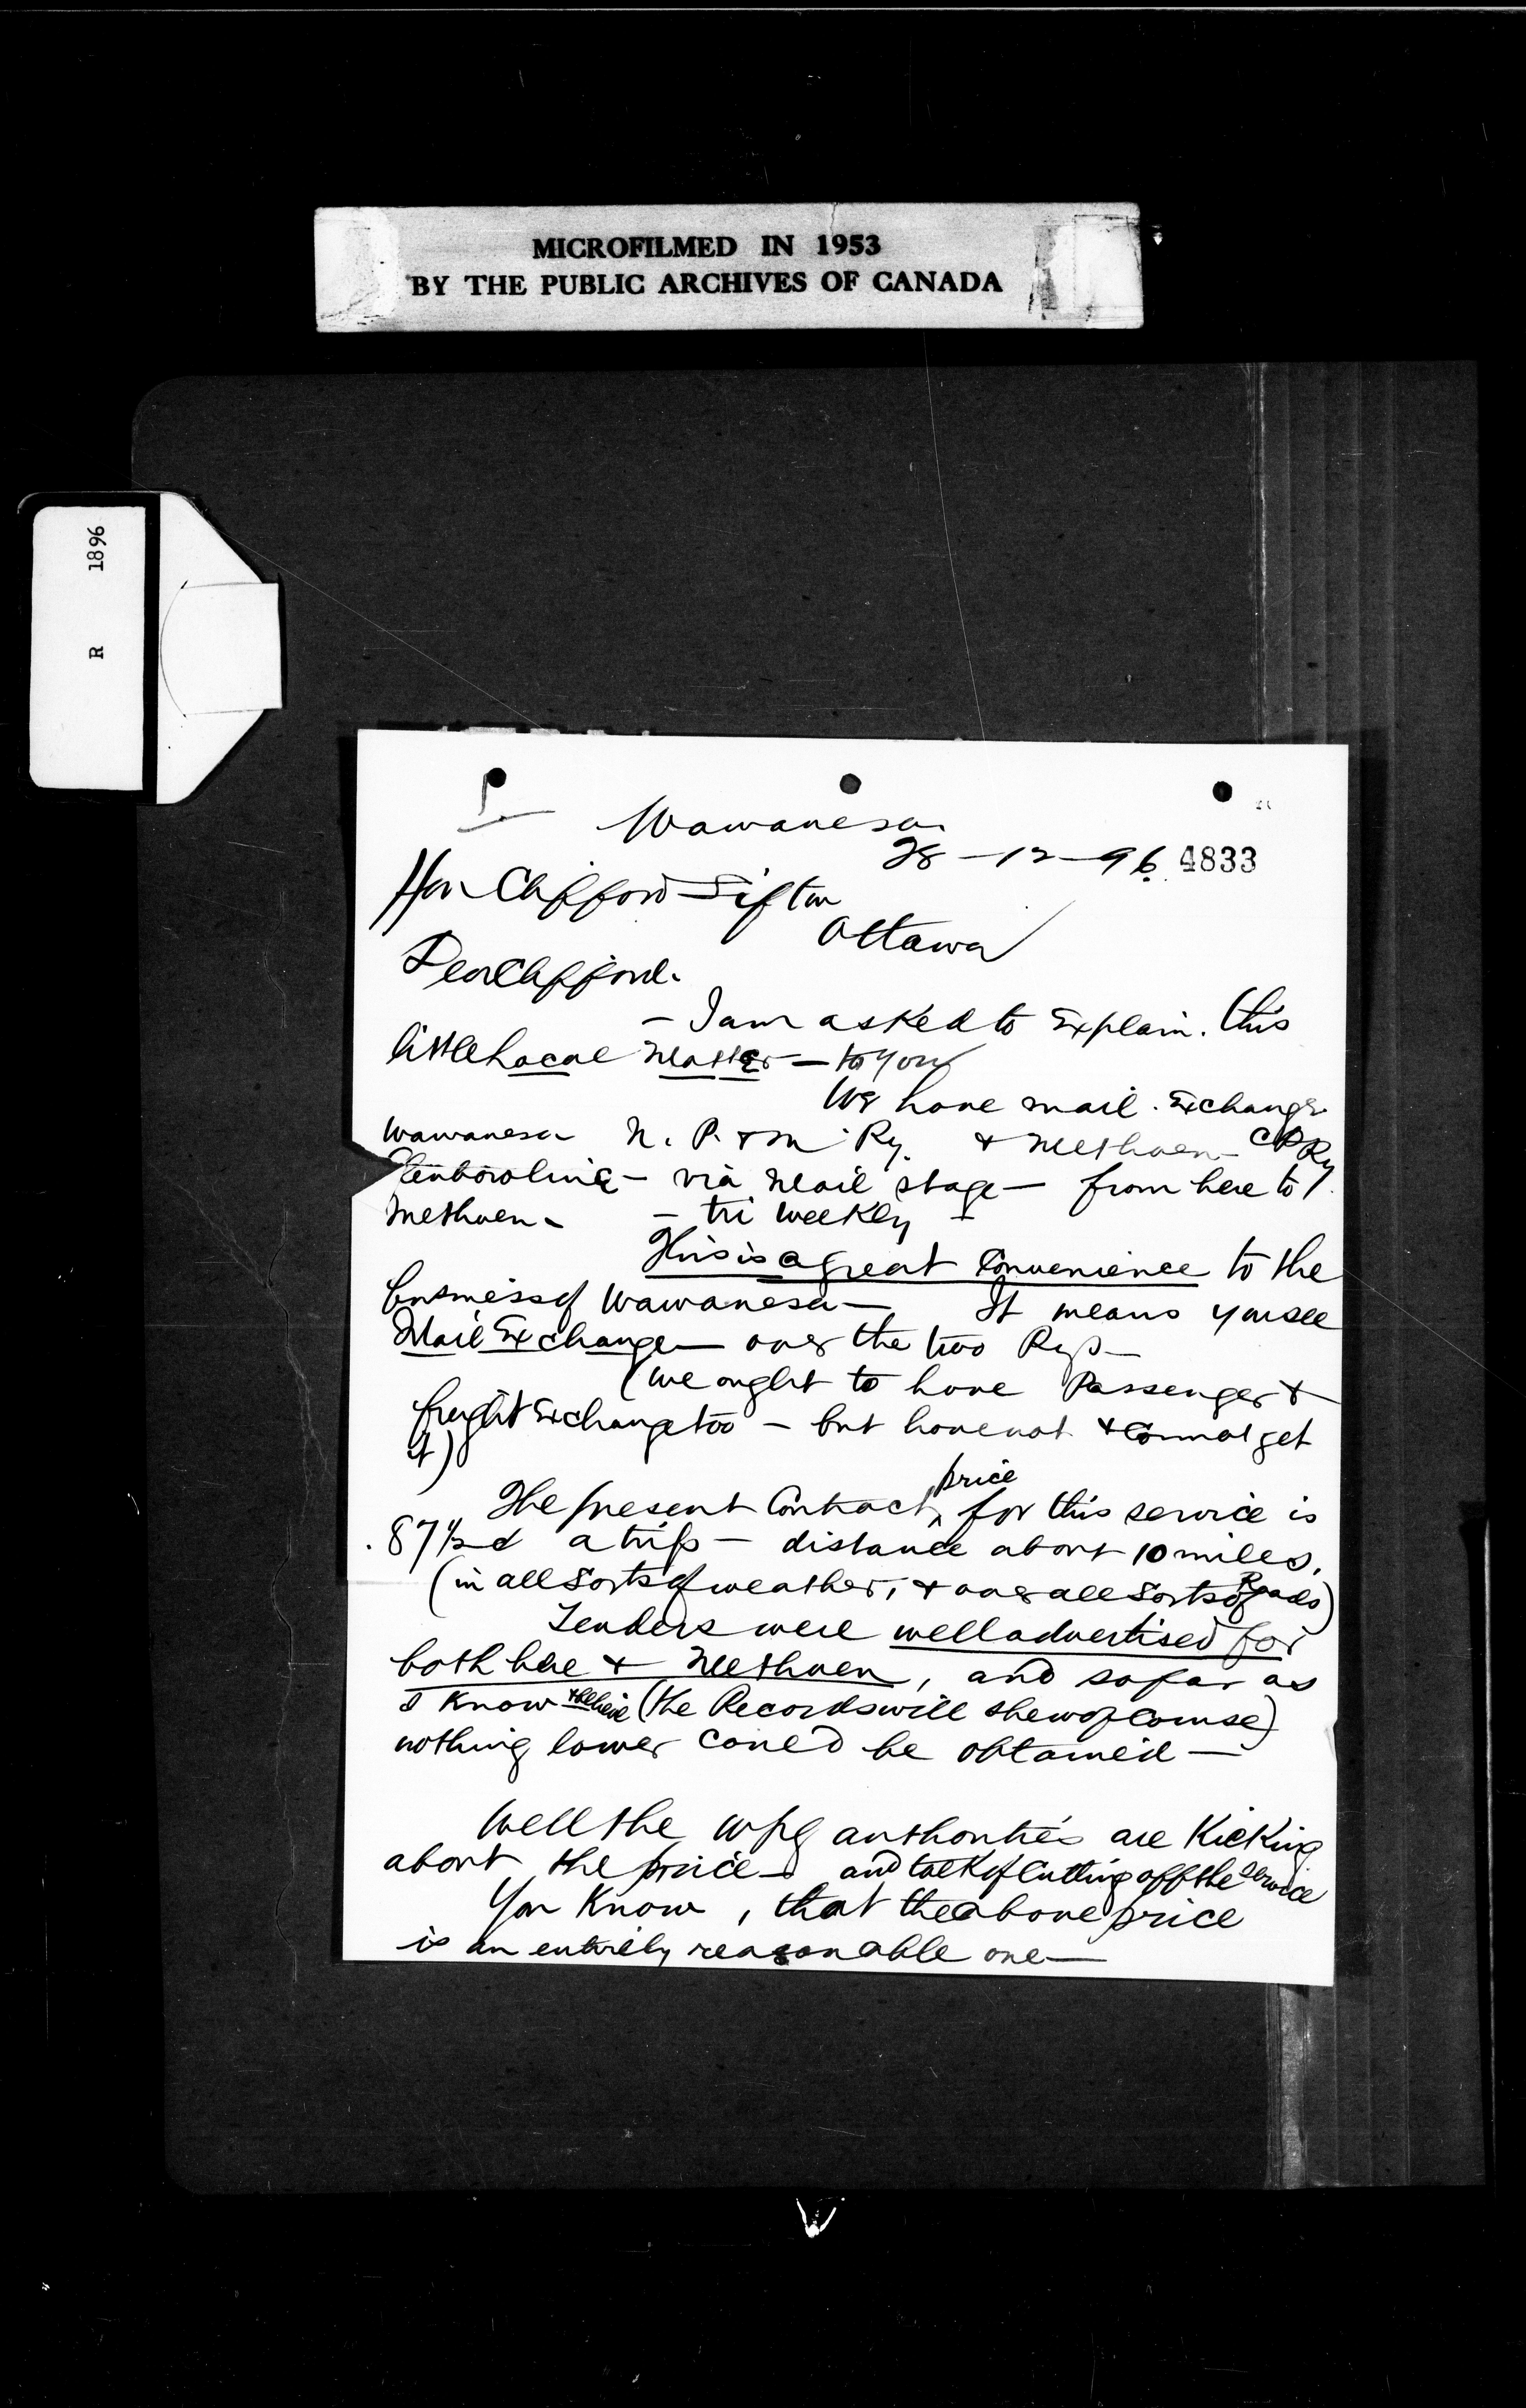 MICROFILMED IN 1953
BY THE PUBLIC ARCHIVES OF CANADA
R 1896
Wawanesa
28-12-96. 4833
Hon Clifford Sifton
Ottawa
Dear Clifford.
- I am asked to Explain. this
little Local Matter - to you
We have mail. Exchange
Wawanesa N. P. & M Ry. & Methven - CPRy
Glenboro line - via Mail stage - from here to
Methven - - tri Weekly -
This is a great Convenience to the
business of Wawanesa - It means you see
Mail Exchange - over the two Rys -
(we ought to have Passenger &
freight Exchange too - but have not & Cannot get
it)
The present Contract price for this service is
.87½ ¢ a trip - distance about 10 miles.
(in all Sorts of weather, & over all Sorts of Roads)
Tenders were well advertised for
both here & Methven, and so far as
I Know & believe (the Records will shew of Course)
nothing lower Could be obtained -
Well the Wpg authorities are Kicking
about the price - and talk of Cutting off the Service
You Know, that the above price
is an entirely reasonable one -